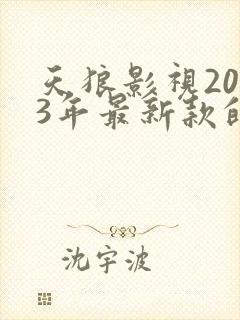 天狼影視20
3年最新款的
沈宇波